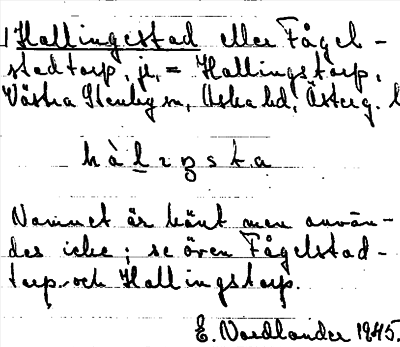 Hallingestad eller Fågel-
stadtorp, jr, = Hallingstorp,
Västra Stenby sn, Aska hd, Österg. l
hàlıŋsta
Namnet är känt men använ-
des icke; se även Fågelstad-
torp och Hallingstorp.
E. Nordlander 1945.